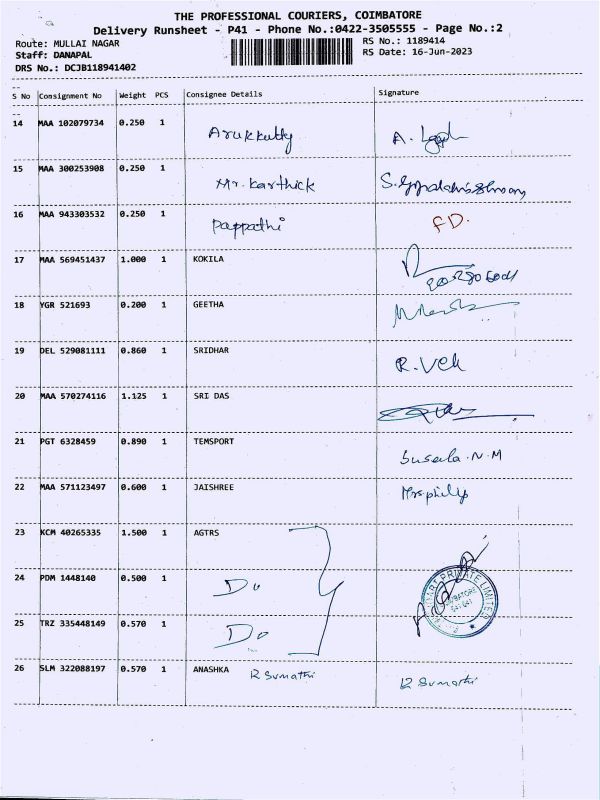 THE PROFESSIONAL COURIERS, COIMBATORE
Delivery Runsheet - P41 - Phone No.:0422-3505555 - Page No.:2
Route: MULLAI NAGAR RS No.: 1189414
Staff: DANAPAL RS Date: 16-Jun-2023
DRS No.: DCJB118941402
S No Consignment No Weight PCS Consignee Details Signature
14 MAA 102079734 0.250 1 Arukkutty A.
15 MAA 300253908 0.250 1 Mr. Karthick
16 MAA 943303532 0.250 1 Pappathi FD.
17 MAA 569451437 1.000 1 KOKILA
18 YGR 521693 0.200 1 GEETHA
19 DEL 529081111 0.860 1 SRIDHAR R.
20 MAA 570274116 1.125 1 SRI DAS
21 PGT 6328459 0.890 1 TEMSPORT Susela.N.M
22 MAA 571123497 0.600 1 JAISHREE
23 KCM 40265335 1.500 1 AGTRS
24 PDM 1448140 0.500 1 Do
25 TRZ 335448149 0.570 1 Do
26 SLM 322088197 0.570 1 ANASHKA R Sumathi R Sumathi
PRIVATE LIMITED